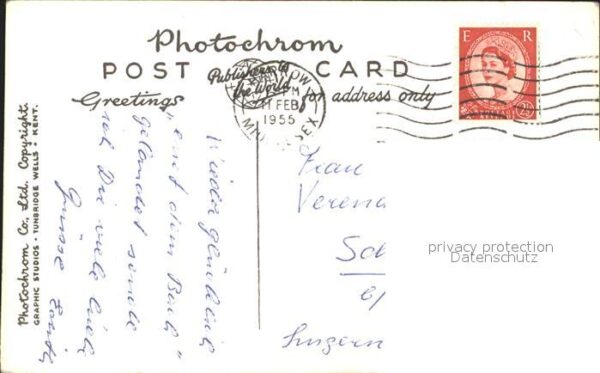 Photochrom
POST CARD
Publishers to
the World
Greetings for address only
E R
2½
FEB
1955
MIDDLESEX
Photochrom Co., Ltd. Copyright.
GRAPHIC STUDIOS • TUNBRIDGE WELLS • KENT.
Wieder glücklich
mit dem
gelandet sende
Dir viele liebe
Grüsse
Frau
Verena
Sch
b/
Luzern
privacy protection
Datenschutz